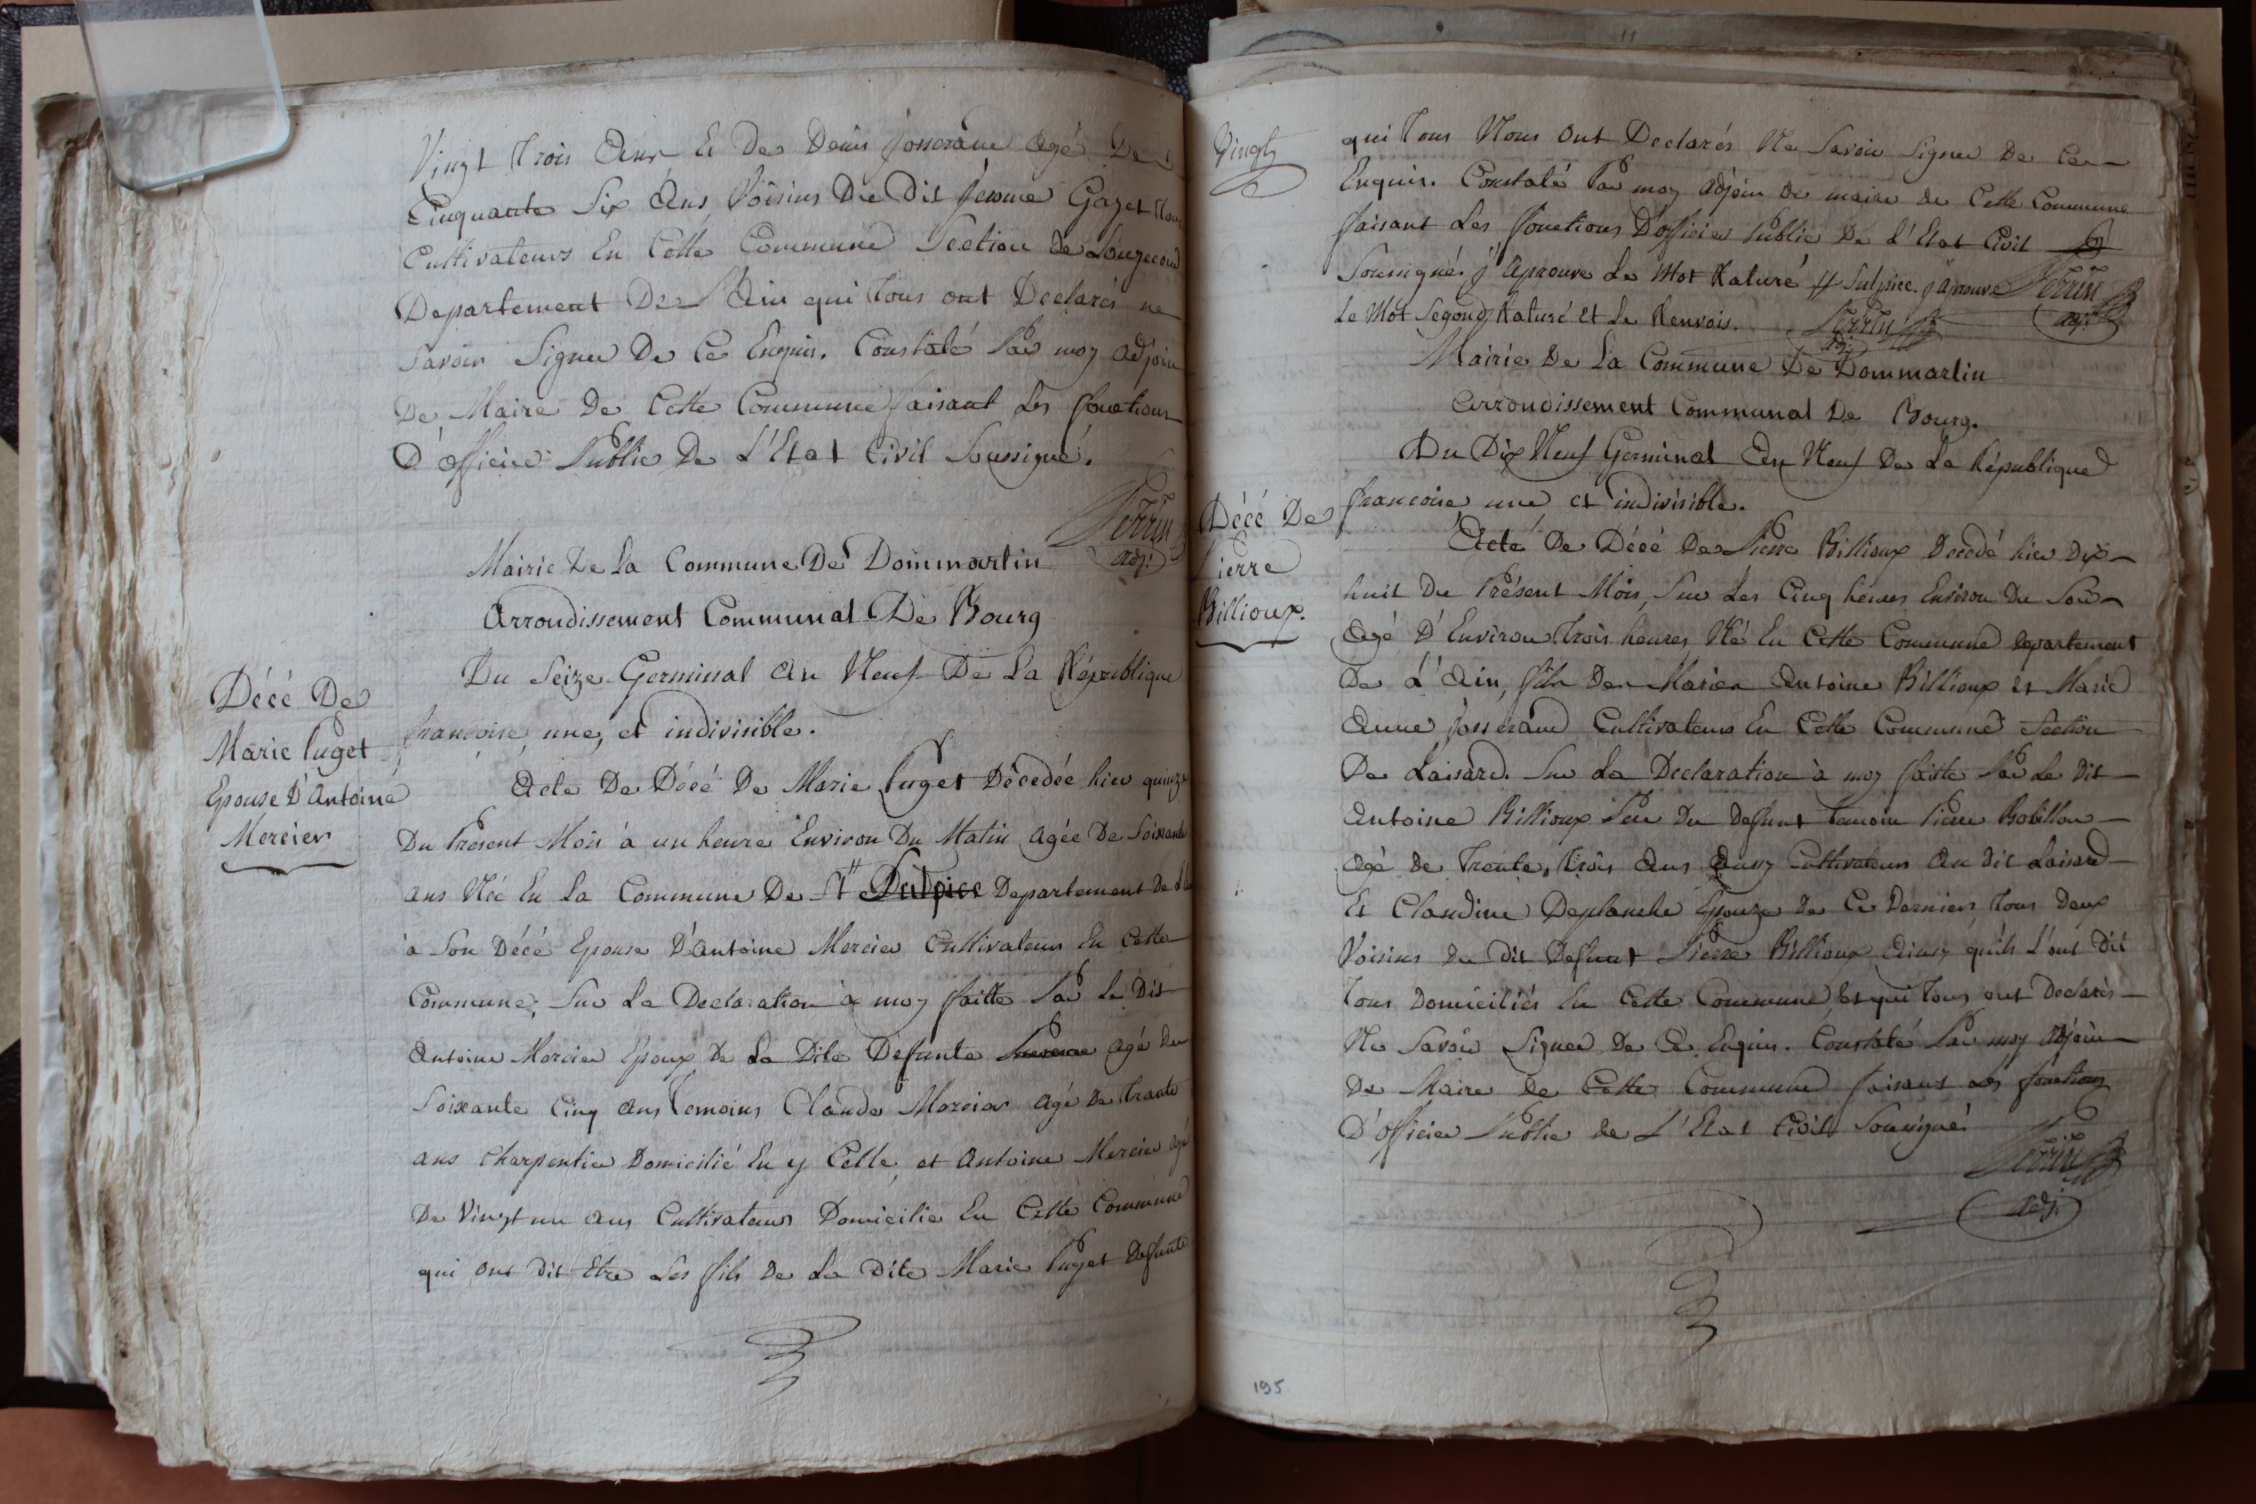 Vingt trois Ans Et De Denis Josserand Agé De
Cinquante Six Ans Voisins Du Dit Gayet tous
Cultivateurs En Cette Commune Section De
Departement De L'Ain qui tous ont Declarés ne
Savoir Signer De Ce Enquis. Constaté Par moy adjoin
De Maire De Cette Commune faisant Les fonctions
D'officier Public De L'Etat Civil Soussigné.
Perrin
adj.
Mairie De La Commune De Dommartin
Arrondissement Communal De Bourg
Du Seize Germinal An Neuf De La République
francoise une, et indivisible.
Décé De
Marie Puget
Epouse D'Antoine
Mercier
Acte De Décé De Marie Puget Décedée hier quinze
Du Présent Mois à un heure Environ Du Matin Agée De Soixante
ans Née En La Commune De St // Sulpice Departement De
à Son Décé Epouse D'Antoine Mercier Cultivateur En Cette
Commune, Sur La Declaration à moy faitte Par Le Dit
Antoine Mercier Epoux De La Dite Defunte agé De
Soixante Cinq ans Temoins Claude Mercier agé De Trante
ans Charpentier Domicilié En y Celle, et Antoine Mercier agé
De Vingt un ans Cultivateur Domicilié En Cette Commune
qui ont Dit Etre Les fils De La Dite Marie Puget Defunte
Vingt
qui tous Nous ont Declarés Ne Savoir Signer De Ce
Enquis. Constaté Par moy adjoin De maire De Cette Commune
faisant Les fonctions D'officier Public De L'Etat Civil
Soussigné. J'Aprouve Le Mot Raturé // Sulpice. J'aprouve Perrin
Le Mot Segond Raturé Et Le Renvois. Perrin adj.
adj.
Mairie De La Commune De Dommartin
Arrondissement Communal De Bourg.
Du Dix Neuf Germinal An Neuf De La République
francoise une et indivisible.
Décé De
Pierre
Billioux.
Acte De Décé De Pierre Billioux Decedé hier Dix
huit Du Présent Mois, Sur Les Cinq heures Environ Du Soir
Agé D'Environ Trois heures Né En Cette Commune Departement
De L'Ain, fils De Antoine Billioux Et Marie
Anne Josserand Cultivateurs En Cette Commune Section
De Laisard. Sur La Declaration à moy faitte Par Le Dit
Antoine Billioux Père Du Defunt Temoin Pierre Robillon
agé De Trente, trois Ans Aussy Cultivateur Au Dit Laisard
Et Claudine Deplanche Epouze De Ce Dernier, tous Deux
Voisins Du Dit Defunt Pierre Billioux Ainsy qu'ils L'ont Dit
tous Domiciliés En Cette Commune Et qui tous ont Declarés
Ne Savoir Signer De Ce Enquis. Constaté Par moy Adjoin
De Maire De Cette Commune faisant Les fonctions
D'officier Public De L'Etat Civil Soussigné
Perrin
adj.
195